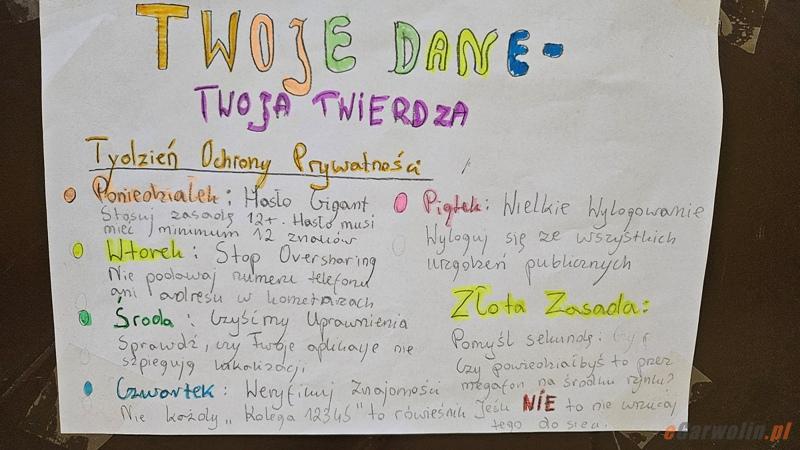 TWOJE DANE -
TWOJA TWIERDZA
Tydzień Ochrony Prywatności
Poniedziałek: Hasło Gigant
Stosuj zasadę 12+. Hasło musi
mieć minimum 12 znaków
Wtorek: Stop Oversharing
Nie podawaj numeru telefonu
ani adresu w kometarzach
Środa: Czyścimy Uprawnienia
Sprawdź, czy Twoje aplikacje nie
szpiegują lokalizacji
Czwartek: Weryfikuj Znajomości
Nie każdy "Kolega 12345" to rówieśnik
Piątek: Wielkie Wylogowanie
Wyloguj się ze wszystkich
urządzeń publicznych
Złota Zasada:
Pomyśl sekundę:
Czy powiedziałbyś to przez
megafon na środku rynku?
Jeśli NIE to nie wrzucaj
tego do sieci.
eGarwolin.pl